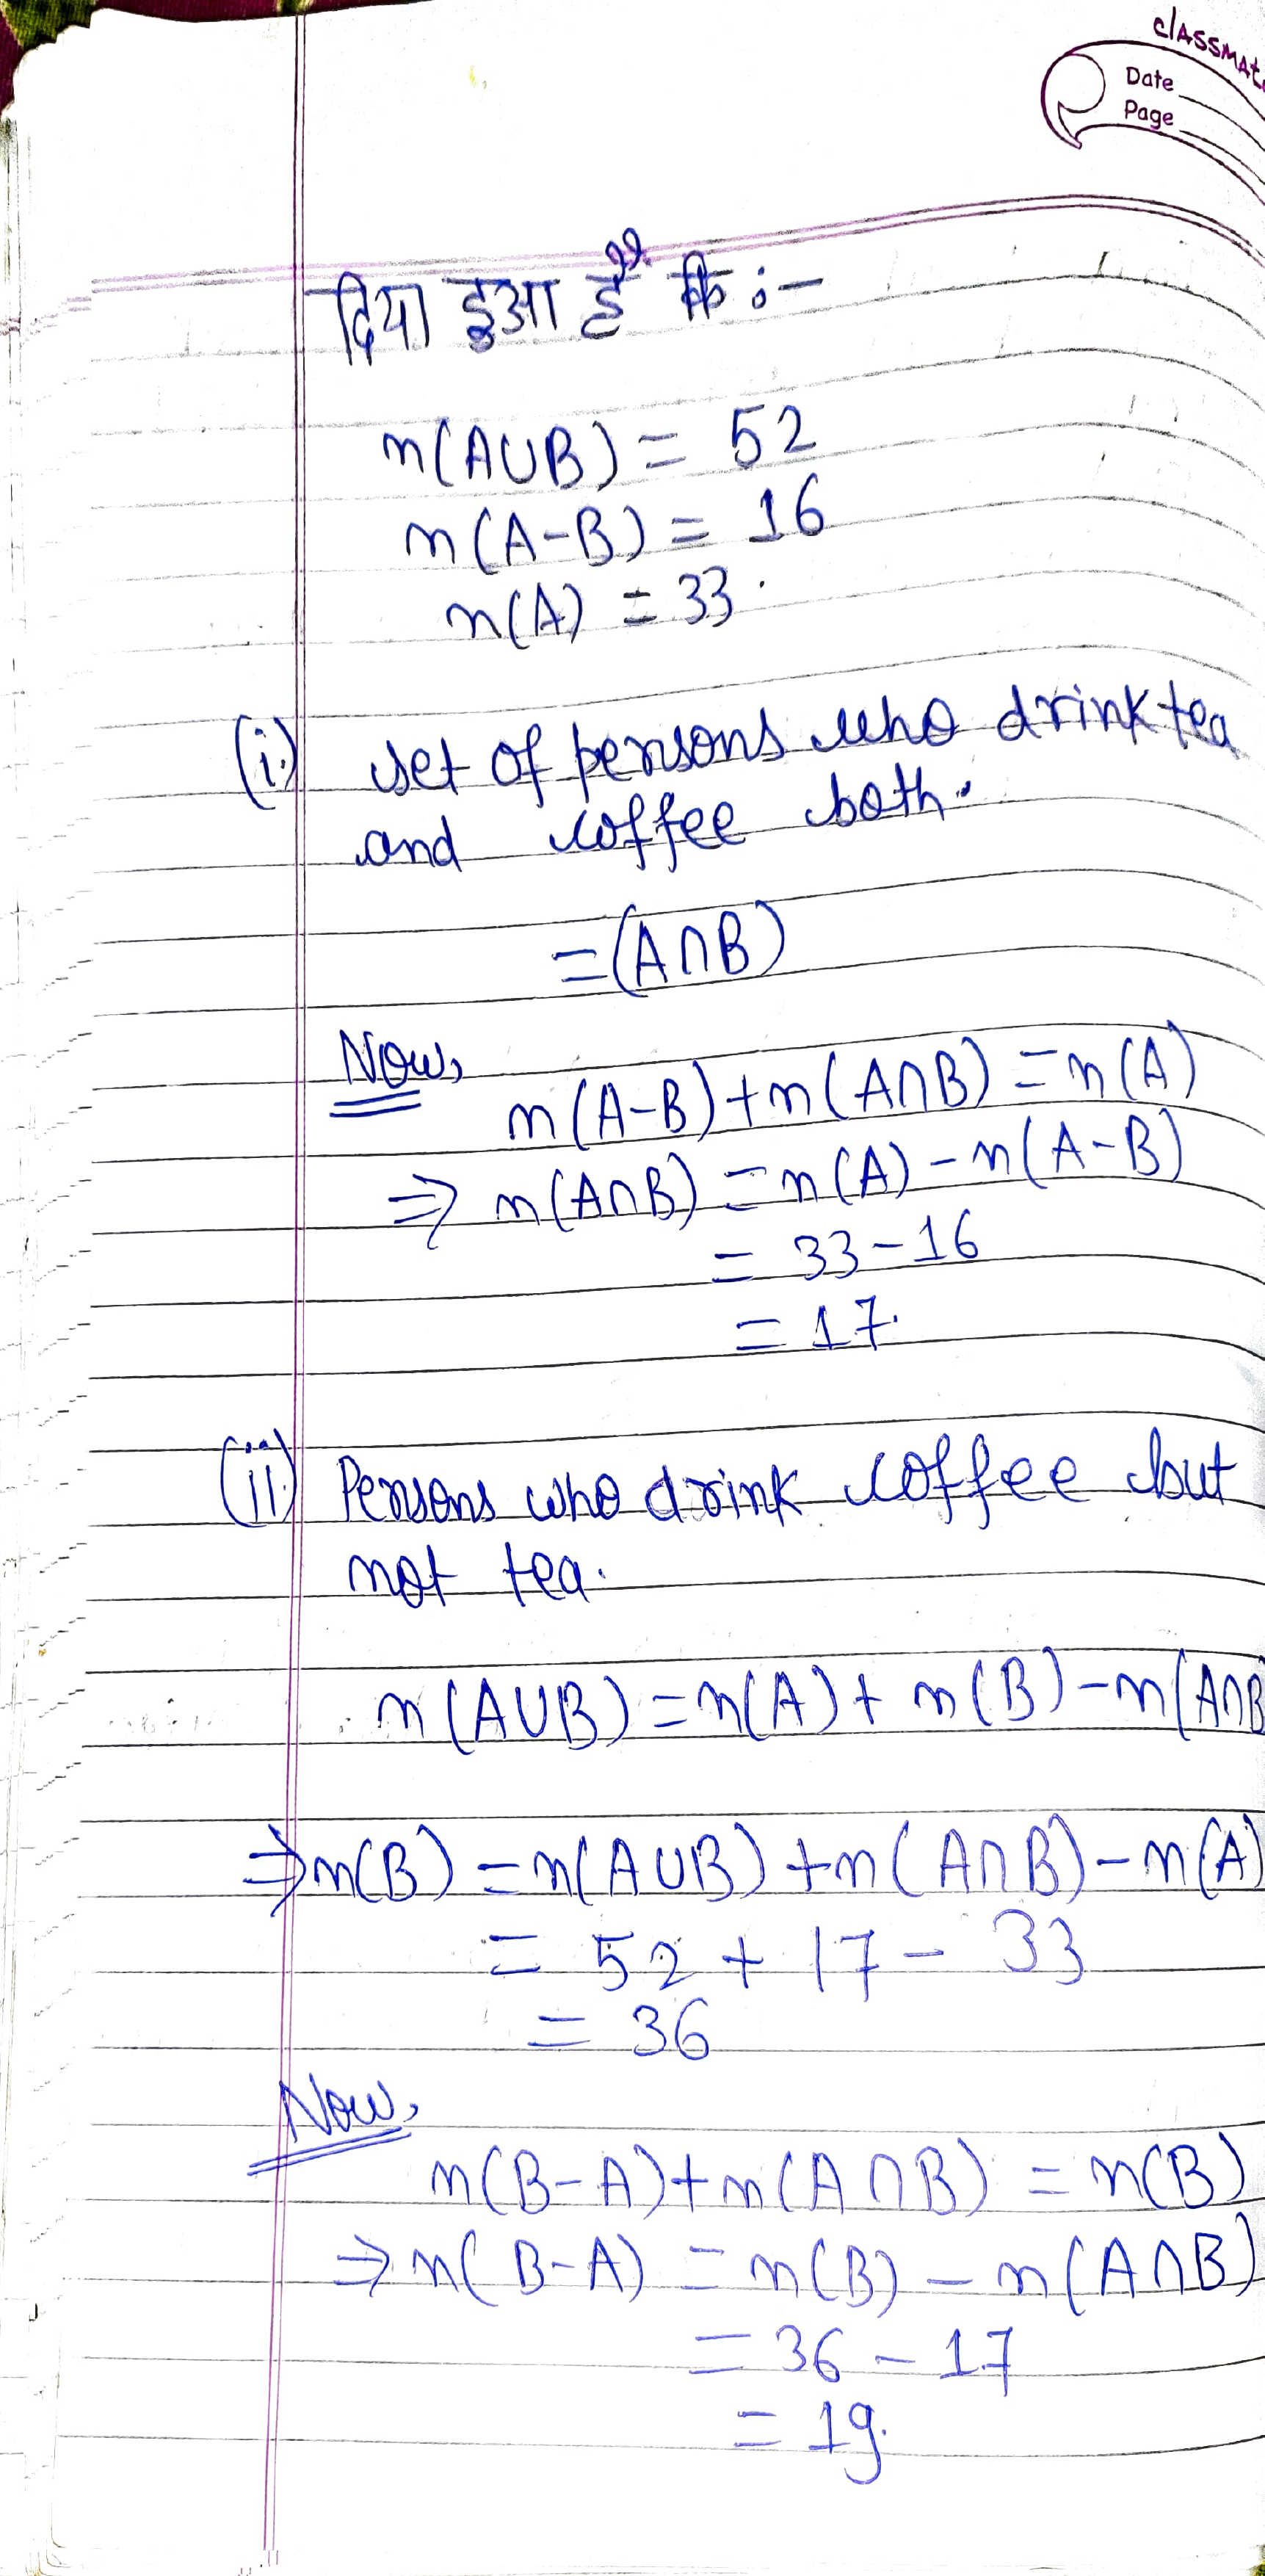 classmate
Date
Page
दिया हुआ है कि :-
n(A∪B) = 52
n(A-B) = 16
n(A) = 33.
(i) set of persons who drink tea
and coffee both.
= (A∩B)
Now,
n(A-B)+n(A∩B) = n(A)
⇒ n(A∩B) = n(A) - n(A-B)
= 33-16
= 17.
(ii) Persons who drink coffee but
not tea.
n(A∪B) = n(A) + n(B) - n(A∩B
⇒ n(B) = n(A∪B) + n(A∩B) - n(A)
= 52 + 17 - 33
= 36
Now,
n(B-A)+n(A∩B) = n(B)
⇒ n(B-A) = n(B) - n(A∩B)
= 36 - 17
= 19.